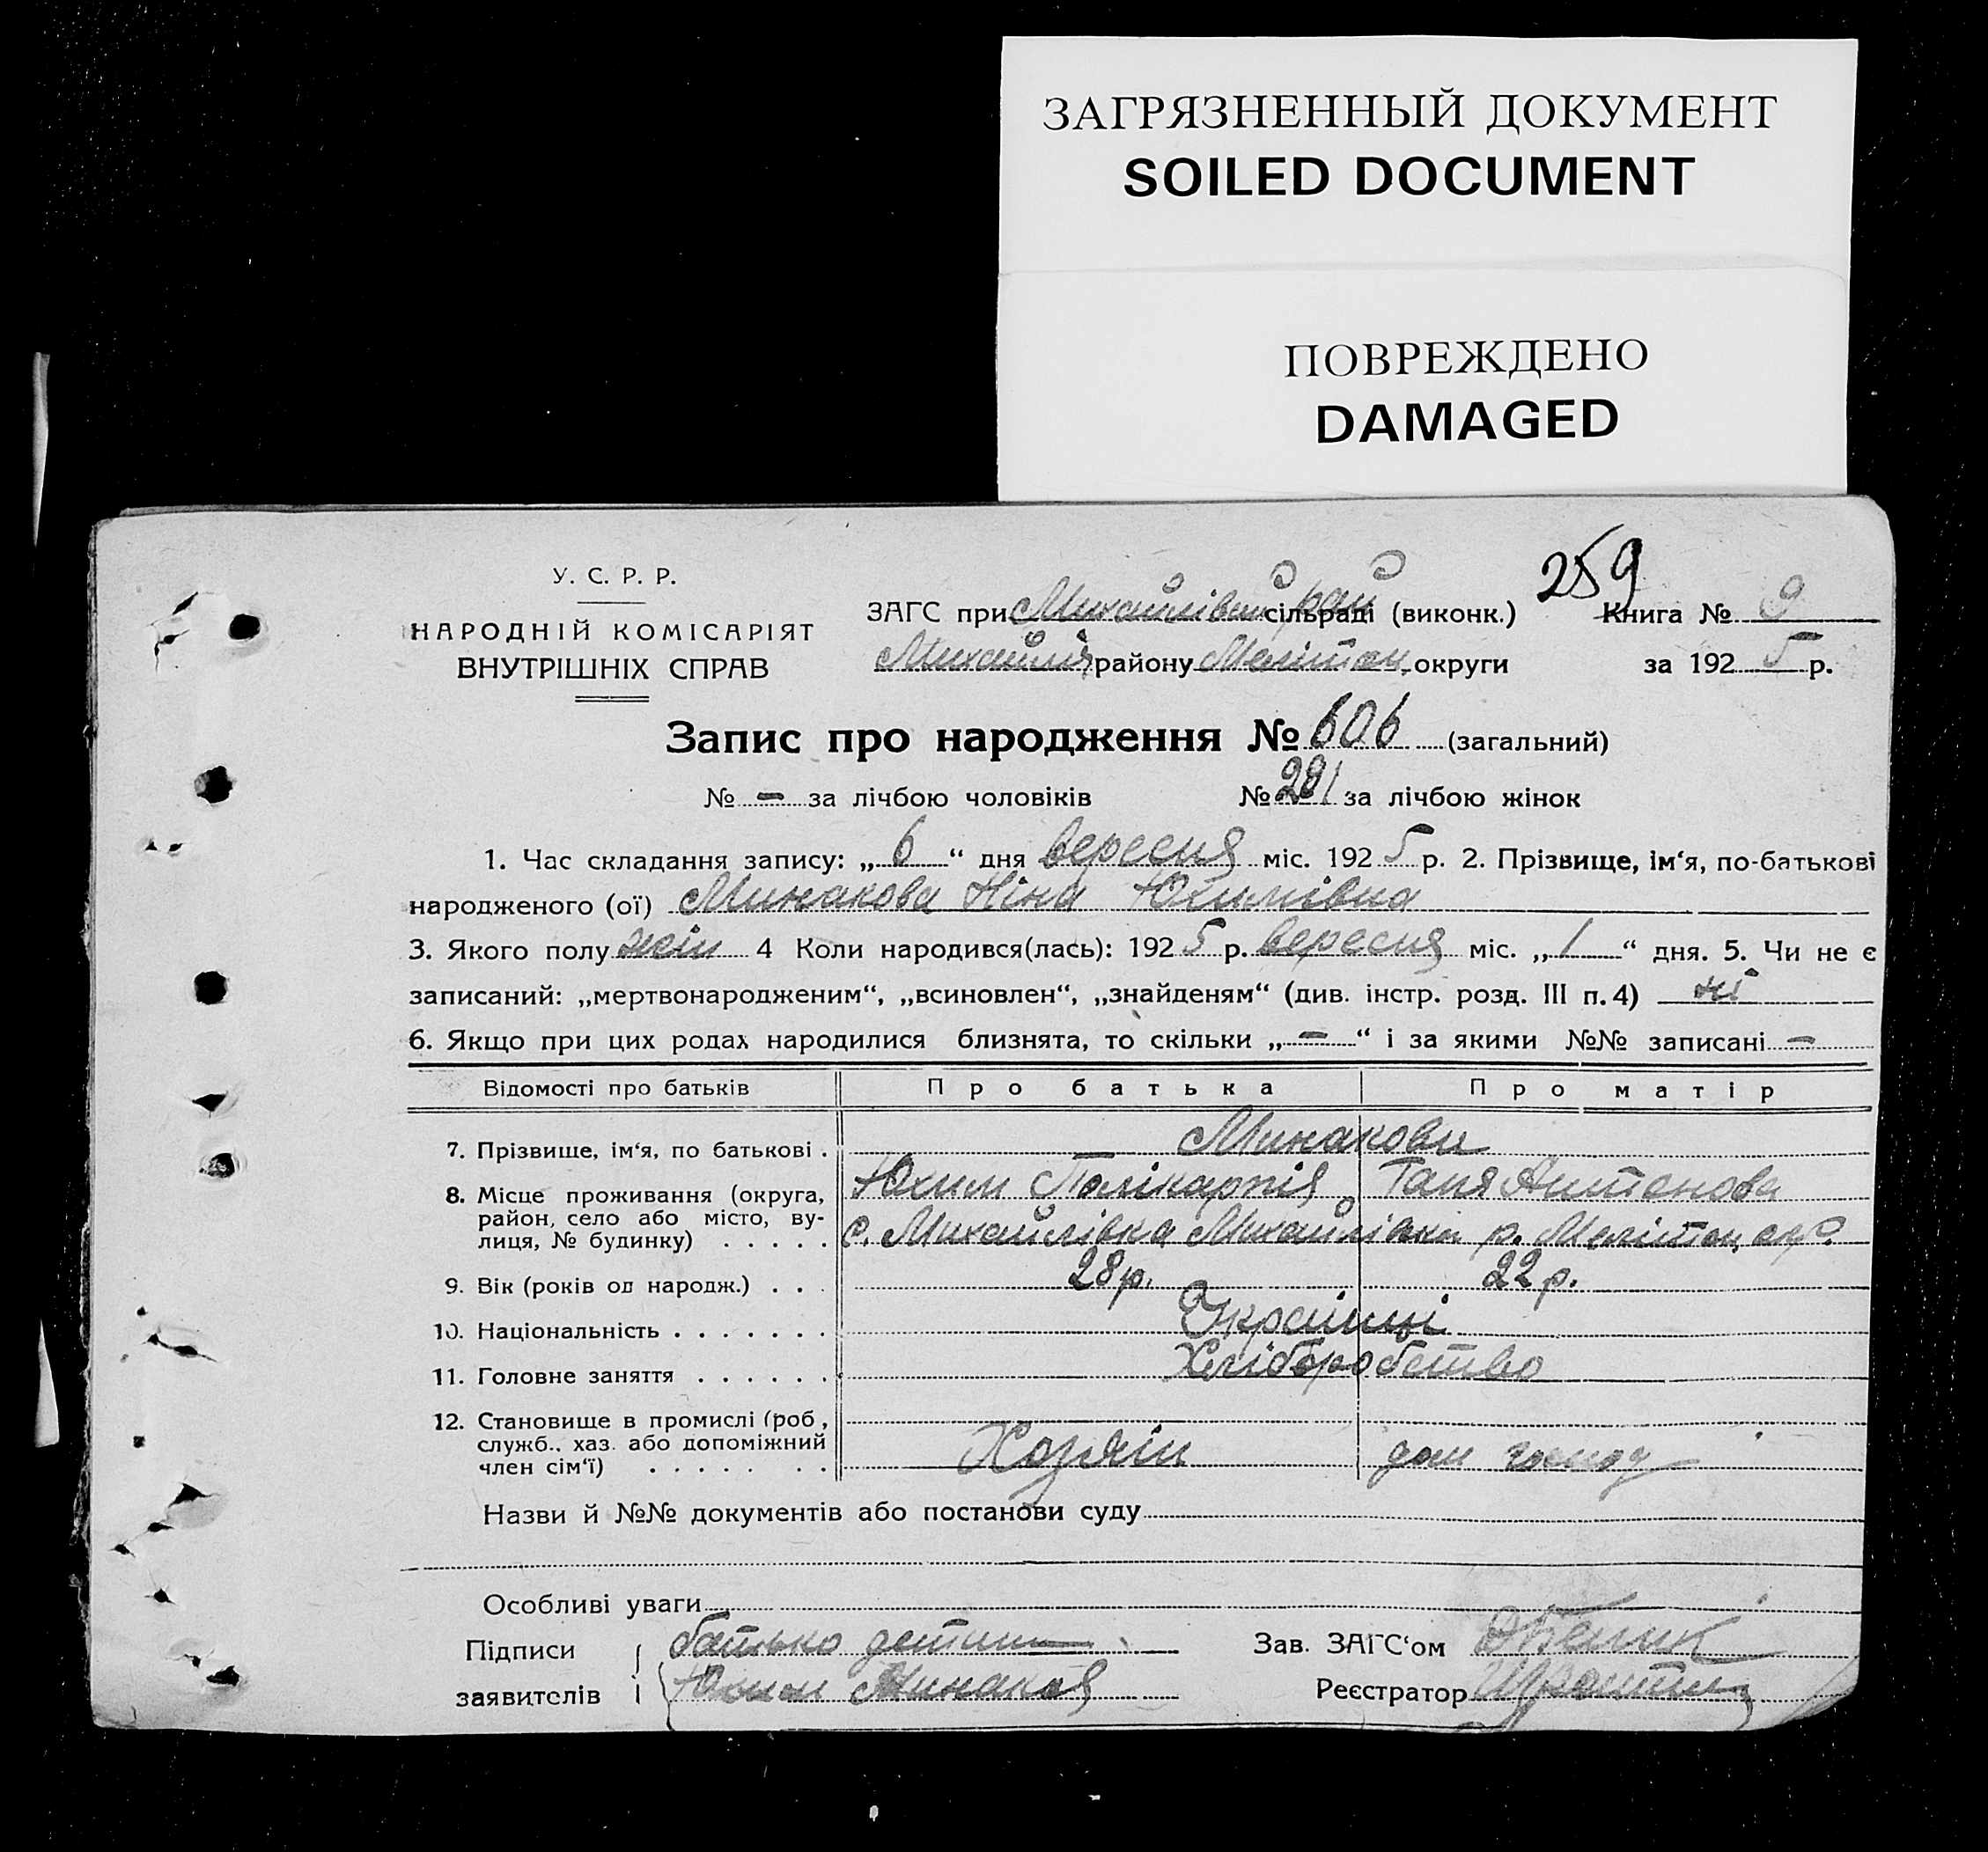 ЗАГРЯЗНЕННЫЙ ДОКУМЕНТ
SOILED DOCUMENT
ПОВРЕЖДЕНО
DAMAGED
259
У. С. Р. Р.
НАРОДНІЙ КОМІСАРІЯТ
ВНУТРІШНІХ СПРАВ
ЗАГС при Михайлівськ рай сільраді (виконк.) Книга № 9
Михайлів району Мелітоп. округи за 1925 р.
Запис про народження № 606 (загальний)
№ – за лічбою чоловіків № 291 за лічбою жінок
1. Час складання запису: „6“ дня вересня міс. 1925 р. 2. Прізвище, ім‘я, по-батькові
народженого (ої) Минакова Ніна Юхимівна
3. Якого полу жін 4 Коли народився(лась): 1925 р. вересня міс. „1“ дня. 5. Чи не є
записаний: „мертвонародженим“, „всиновлен“, „знайденям“ (див. інстр. розд. III п. 4) ні
6. Якщо при цих родах народилися близнята, то скільки „–“ і за якими №№ записані –
Відомості про батьків Про батька Про матір
7. Прізвище, ім‘я, по батькові . Минакови
Юхим Полікарпів Таня Антонова
8. Місце проживання (округа,
район, село або місто, ву-
лиця, № будинку) . . . . . с. Михайлівка Михайлівськ р. Мелітоп. окр.
9. Вік (років од народж.) . . . 28 р. 22 р.
10. Національність . . . . . . . Українці
11. Головне заняття . . . . . . Хліборобство
12. Становище в промислі (роб,
служб., хаз. або допоміжний
член сім‘ї) . . . . . . . Хозяїн дом господ
Назви й №№ документів або постанови суду
Особливі уваги
Підписи батько детини Зав. ЗАГС‘ом
заявителів Юхим Минаков Реєстратор